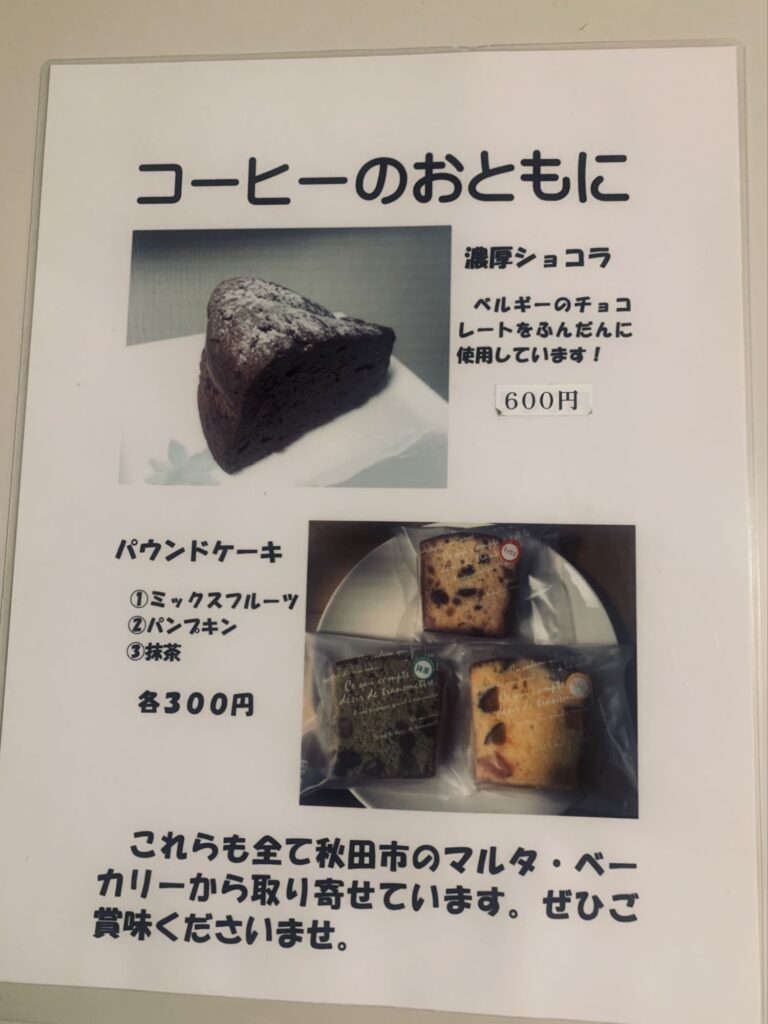 コーヒーのおともに
濃厚ショコラ
ベルギーのチョコ
レートをふんだんに
使用しています！
600円
パウンドケーキ
①ミックスフルーツ
②パンプキン
③抹茶
各３００円
抹茶
Ce qui compte
désir de transmettre
これらも全て秋田市のマルタ・ベー
カリーから取り寄せています。ぜひご
賞味くださいませ。